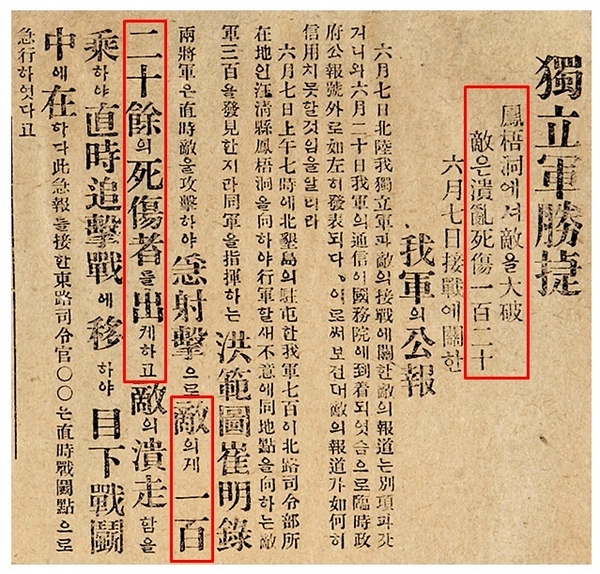 獨立軍勝捷
鳳梧洞에셔敵을大破
敵은潰亂死傷一百二十
六月七日接戰에關한
我軍의公報
六月七日北陸我獨立軍과敵의接戰에關한敵의報道는別項과갓
거니와六月二十日我軍의通信이國務院에到着되엿슴으로臨時政
府公報號外로如左히發表되다。이로써보건대敵의報道가如何히
信用치못할것임을알리라
六月七日上午七時에北墾島의駐屯한我軍七百이北路司令部所
在地인汪淸縣鳳梧洞을向하야行軍할새不意에同地點을向하는敵
軍三百을發見한지라同軍을指揮하는洪範圖崔明錄
兩將軍은直時敵을攻擊하야急射擊으로敵의게一百
二十餘의死傷者를出케하고敵의潰走함을
乘하야直時追擊戰에移하야目下戰鬪
中에在하다此急報를接한東路司令官〇〇는直時戰鬪點으로
急行하엿다고